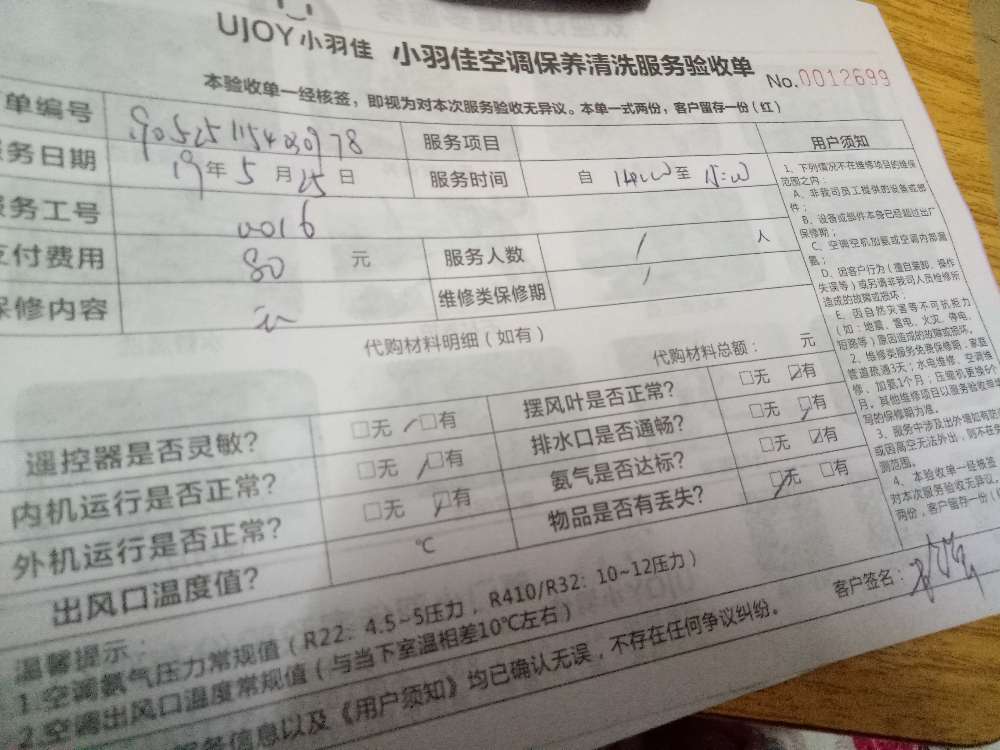 UJOY小羽佳 小羽佳空调保养清洗服务验收单 No.0012699
本验收单一经核签，即视为对本次服务验收无异议。本单一式两份，客户留存一份（红）
单编号 服务项目 用户须知
务日期 19年5月25日 服务时间 自 14:00 至 15:00
务工号 0016
支付费用 80 元 服务人数 / 人
保修内容 维修类保修期 /
1、下列情况不在维修项目的维保
范围之内：
A、非我司员工提供的设备或部
件；
B、设备或部件本身已经超过出厂
保修期；
C、空调空机加氨或空调内部漏
氨；
D、因客户行为（擅自装卸、操作
失误等）或另请非我司人员检修所
造成的故障或损坏；
E、因自然灾害等不可抗拒力
（如：地震、雷电、火灾、停电、
短路等）原因造成的故障或损坏。
2、维修类服务免费保修期，家庭
管道疏通3天；水电维修、空调维
修、加氨1个月，压缩机更换6个
月。其他维修项目以服务验收单填
写的保修期为准。
3、服务中涉及出外墙如有防
或因高空无法外出，则不在免
测范围。
4、本验收单一经核签
对本次服务验收无异议。
两份，客户留存一份（
代购材料明细（如有）
代购材料总额： 元
遥控器是否灵敏？ □无 □有 摆风叶是否正常？ □无 □有
内机运行是否正常？ □无 □有 排水口是否通畅？ □无 □有
外机运行是否正常？ □无 □有 氨气是否达标？ □无 □有
出风口温度值？ ℃ 物品是否有丢失？ □无 □有
温馨提示：
1.空调氨气压力常规值（R22：4.5~5压力，R410/R32：10~12压力）
2.空调出风口温度常规值（与当下室温相差10℃左右）
服务信息以及《用户须知》均已确认无误，不存在任何争议纠纷。
客户签名：